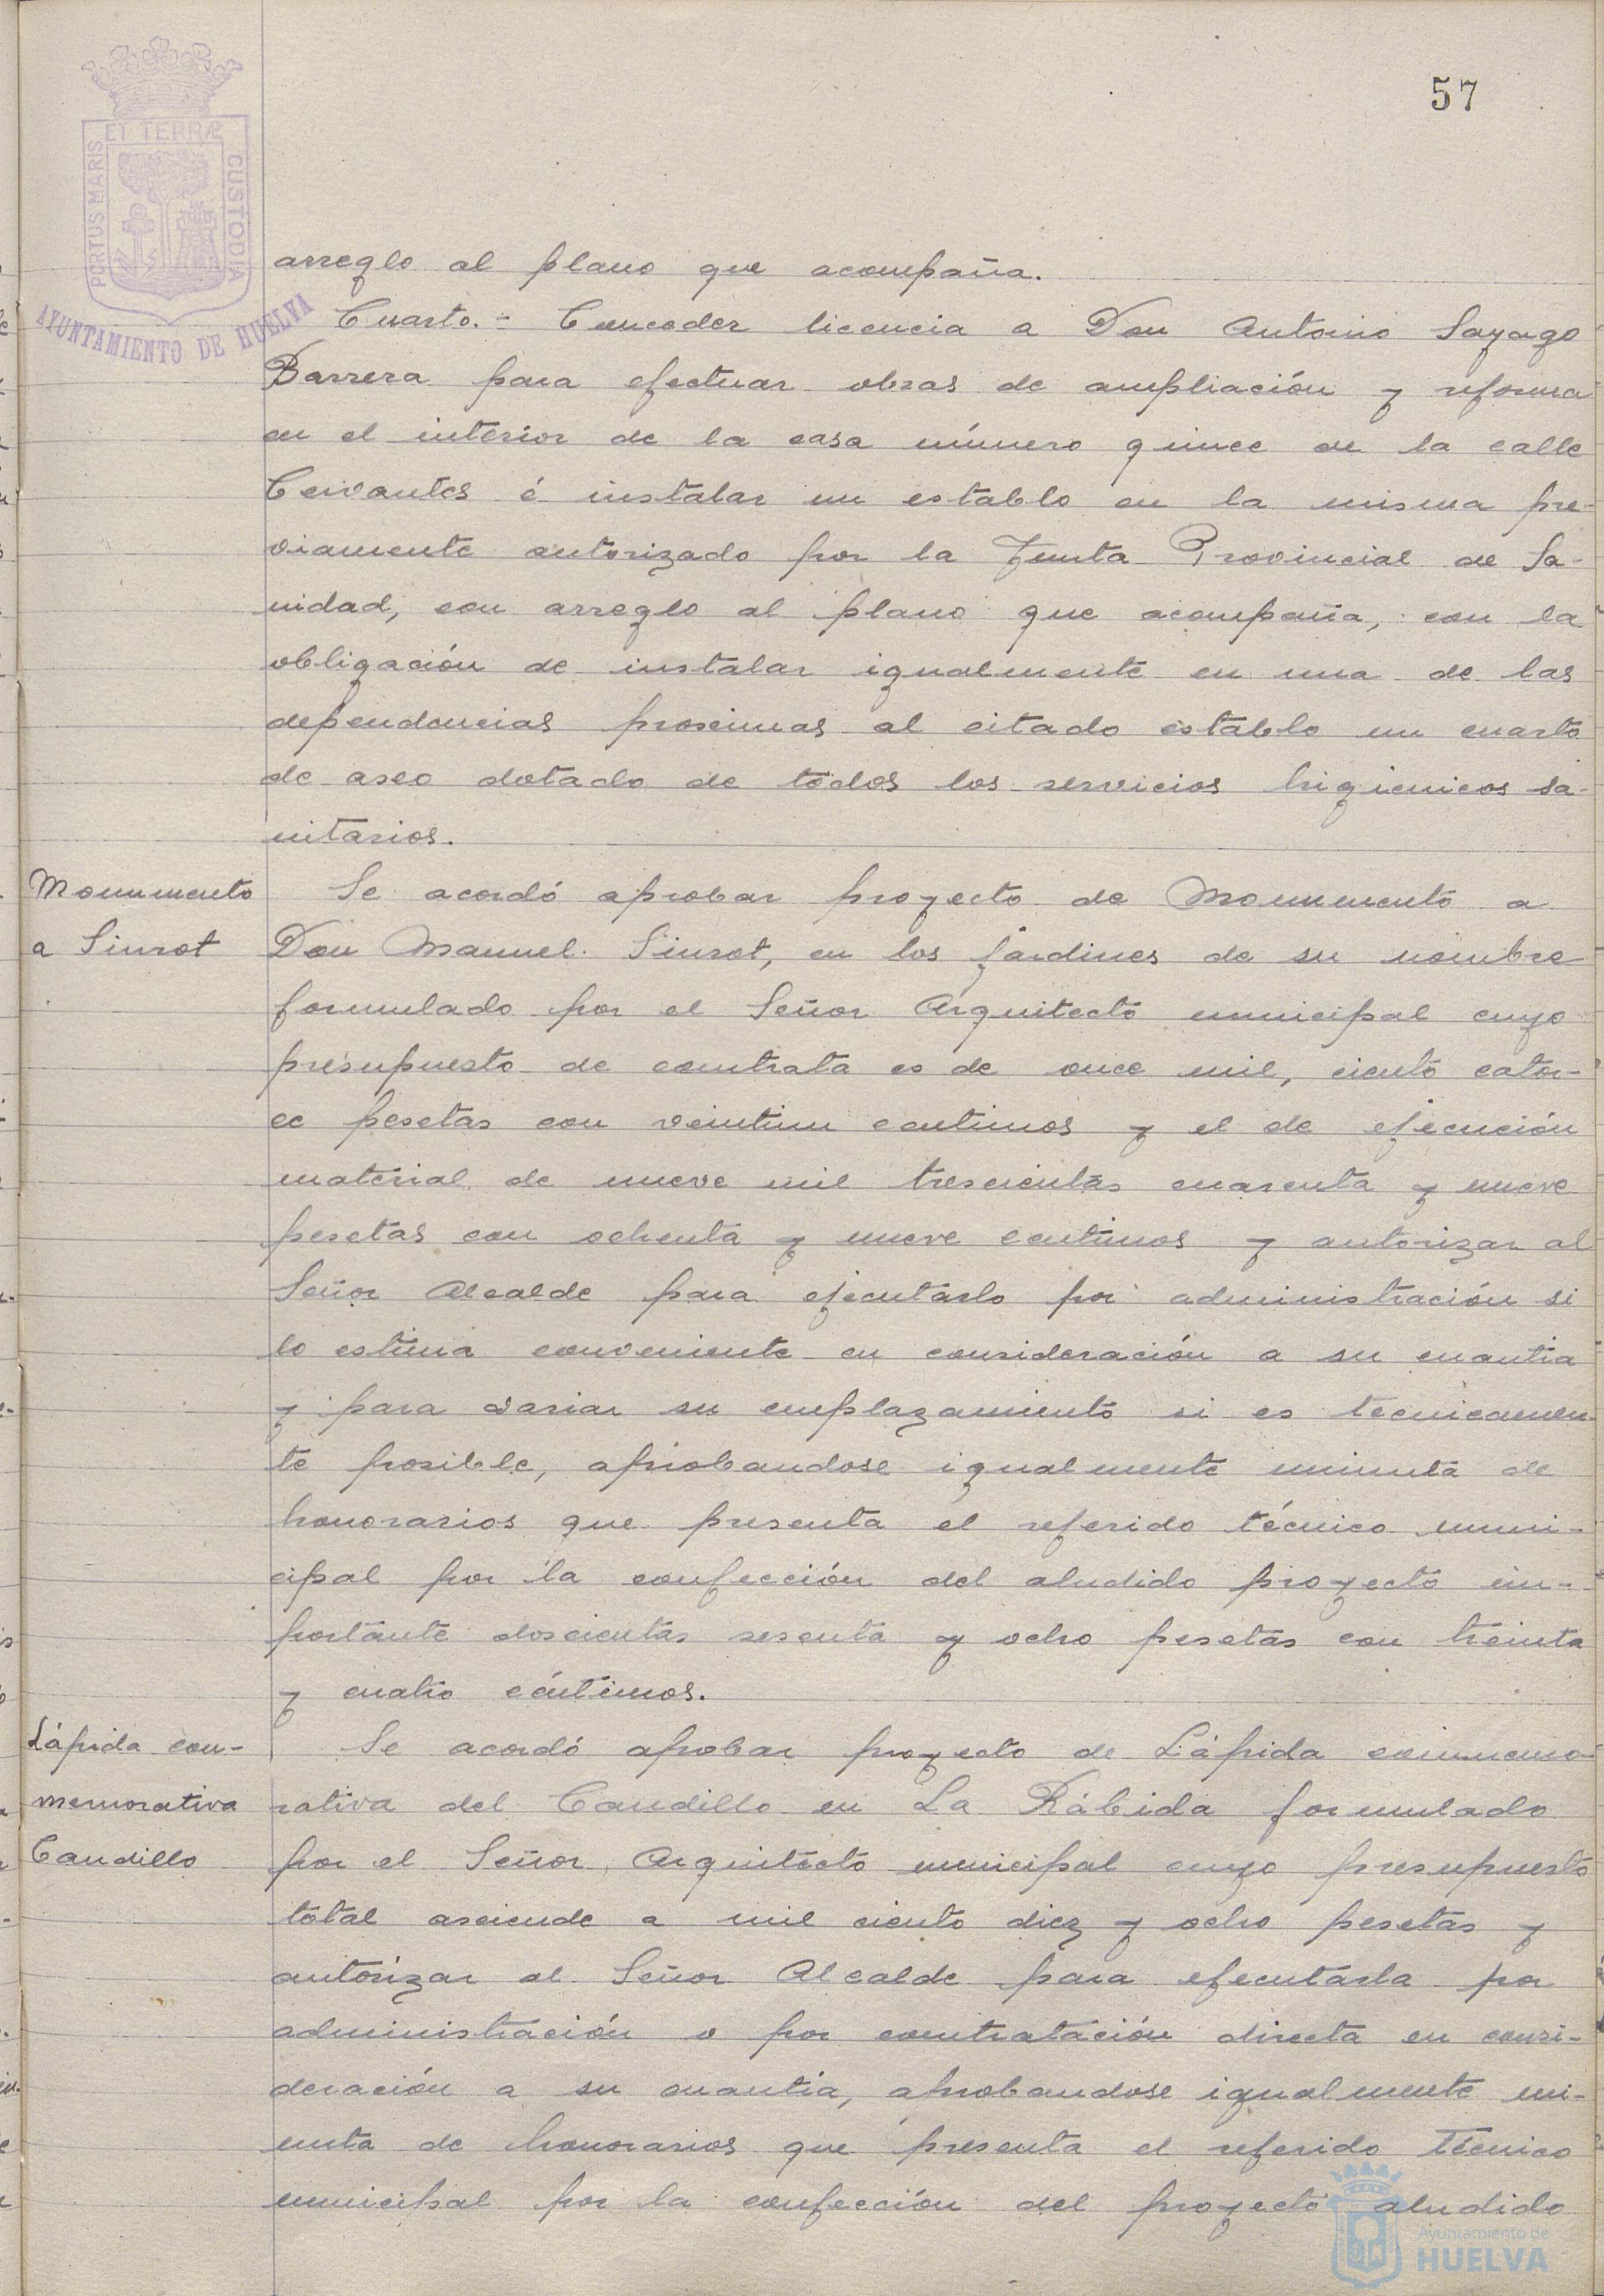 57
PORTUS MARIS ET TERRÆ CUSTODIA
AYUNTAMIENTO DE HUELVA
arreglo al plano que acompaña.
Cuarto.- Conceder licencia a Don Antonio Sayago
Barrera para efectuar obras de ampliación y reforma
en el interior de la casa número quince de la calle
Cervantes é instalar un establo en la misma pre-
viamente autorizado por la Junta Provincial de Sa-
nidad, con arreglo al plano que acompaña, con la
obligación de instalar igualmente en una de las
dependencias proximas al citado establo un cuarto
de aseo dotado de todos los servicios higienicos sa-
nitarios.
Monumento
a Siurot
Se acordó aprobar proyecto de Monumento a
Don Manuel Siurot, en los jardines de su nombre
formulado por el Señor Arquitecto municipal cuyo
presupuesto de contrata es de once mil, ciento cator-
ce pesetas con veintiun centimos y el de ejecución
material de nueve mil trescientas cuarenta y nueve
pesetas con ochenta y nueve centimos y autorizar al
Señor Alcalde para ejecutarlo por administración si
lo estima conveniente en consideración a su cuantia
y para variar su emplazamiento si es tecnicamen-
te posible, aprobandose igualmente minuta de
honorarios que presenta el referido técnico muni-
cipal por la confección del aludido proyecto im-
portante doscientas sesenta y ocho pesetas con treinta
y cuatro céntimos.
Lápida con-
memorativa
Caudillo
Se acordó aprobar proyecto de Lápida conmemo-
rativa del Caudillo en La Rábida formulado
por el Señor Arquitecto municipal cuyo presupuesto
total asciende a mil ciento diez y ocho pesetas y
autorizar al Señor Alcalde para ejecutarla por
administración o por contratación directa en consi-
deración a su cuantia, aprobandose igualmente mi-
nuta de honorarios que presenta el referido Técnico
municipal por la confección del proyecto aludido
Ayuntamiento de
HUELVA